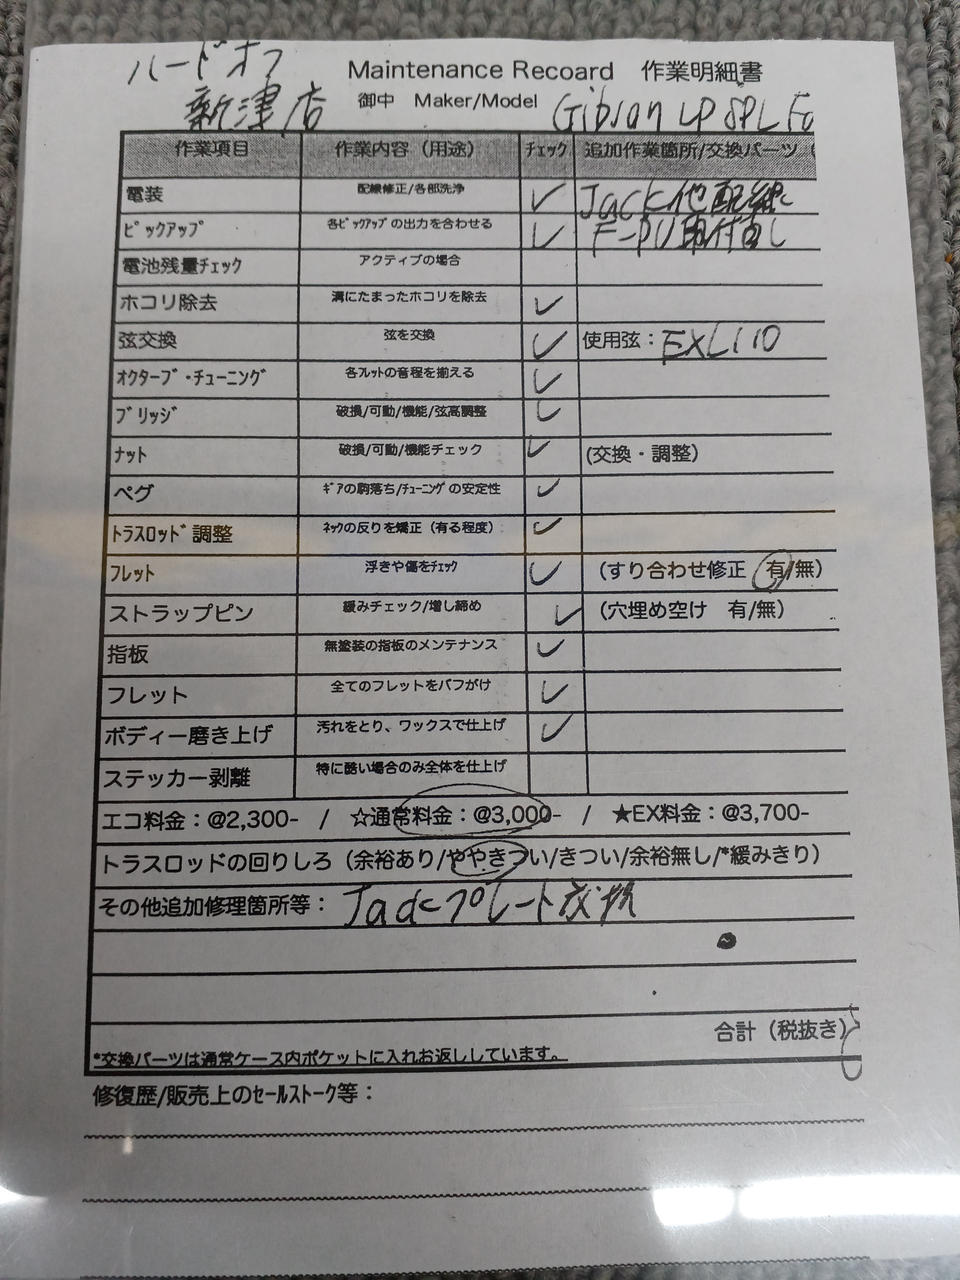 ハードオフ
Maintenance Recoard 作業明細書
新津店 御中 Maker/Model Gibson LP SPL Fa
作業項目 作業内容（用途） チェック 追加作業箇所/交換パーツ（
電装 配線修正/各部洗浄 ✓ Jack他配線
ﾋﾟｯｸｱｯﾌﾟ 各ﾋﾟｯｸｱｯﾌﾟの出力を合わせる ✓ F-PU取付直し
電池残量ﾁｪｯｸ アクティブの場合
ホコリ除去 溝にたまったホコリを除去 ✓
弦交換 弦を交換 ✓ 使用弦：EXL110
ｵｸﾀｰﾌﾞ・ﾁｭｰﾆﾝｸﾞ 各ﾌﾚｯﾄの音程を揃える ✓
ﾌﾞﾘｯｼﾞ 破損/可動/機能/弦高調整 ✓
ﾅｯﾄ 破損/可動/機能チェック ✓ (交換・調整)
ペグ ｷﾞｱの駒落ち/ﾁｭｰﾆﾝｸﾞの安定性 ✓
ﾄﾗｽﾛｯﾄﾞ調整 ﾈｯｸの反りを矯正（有る程度） ✓
ﾌﾚｯﾄ 浮きや傷をﾁｪｯｸ ✓ (すり合わせ修正 有/無)
ストラップピン 緩みチェック/増し締め ✓ (穴埋め空け 有/無)
指板 無塗装の指板のメンテナンス ✓
フレット 全てのフレットをバフがけ ✓
ボディー磨き上げ 汚れをとり、ワックスで仕上げ ✓
ステッカー剥離 特に酷い場合のみ全体を仕上げ
エコ料金：@2,300- / ☆通常料金：@3,000- / ★EX料金：@3,700-
トラスロッドの回りしろ（余裕あり/ややきつい/きつい/余裕無し/*緩みきり）
その他追加修理箇所等： Jackプレート交換
合計（税抜き）
*交換パーツは通常ケース内ポケットに入れお返ししています。
修復歴/販売上のｾｰﾙｽﾄｰｸ等：